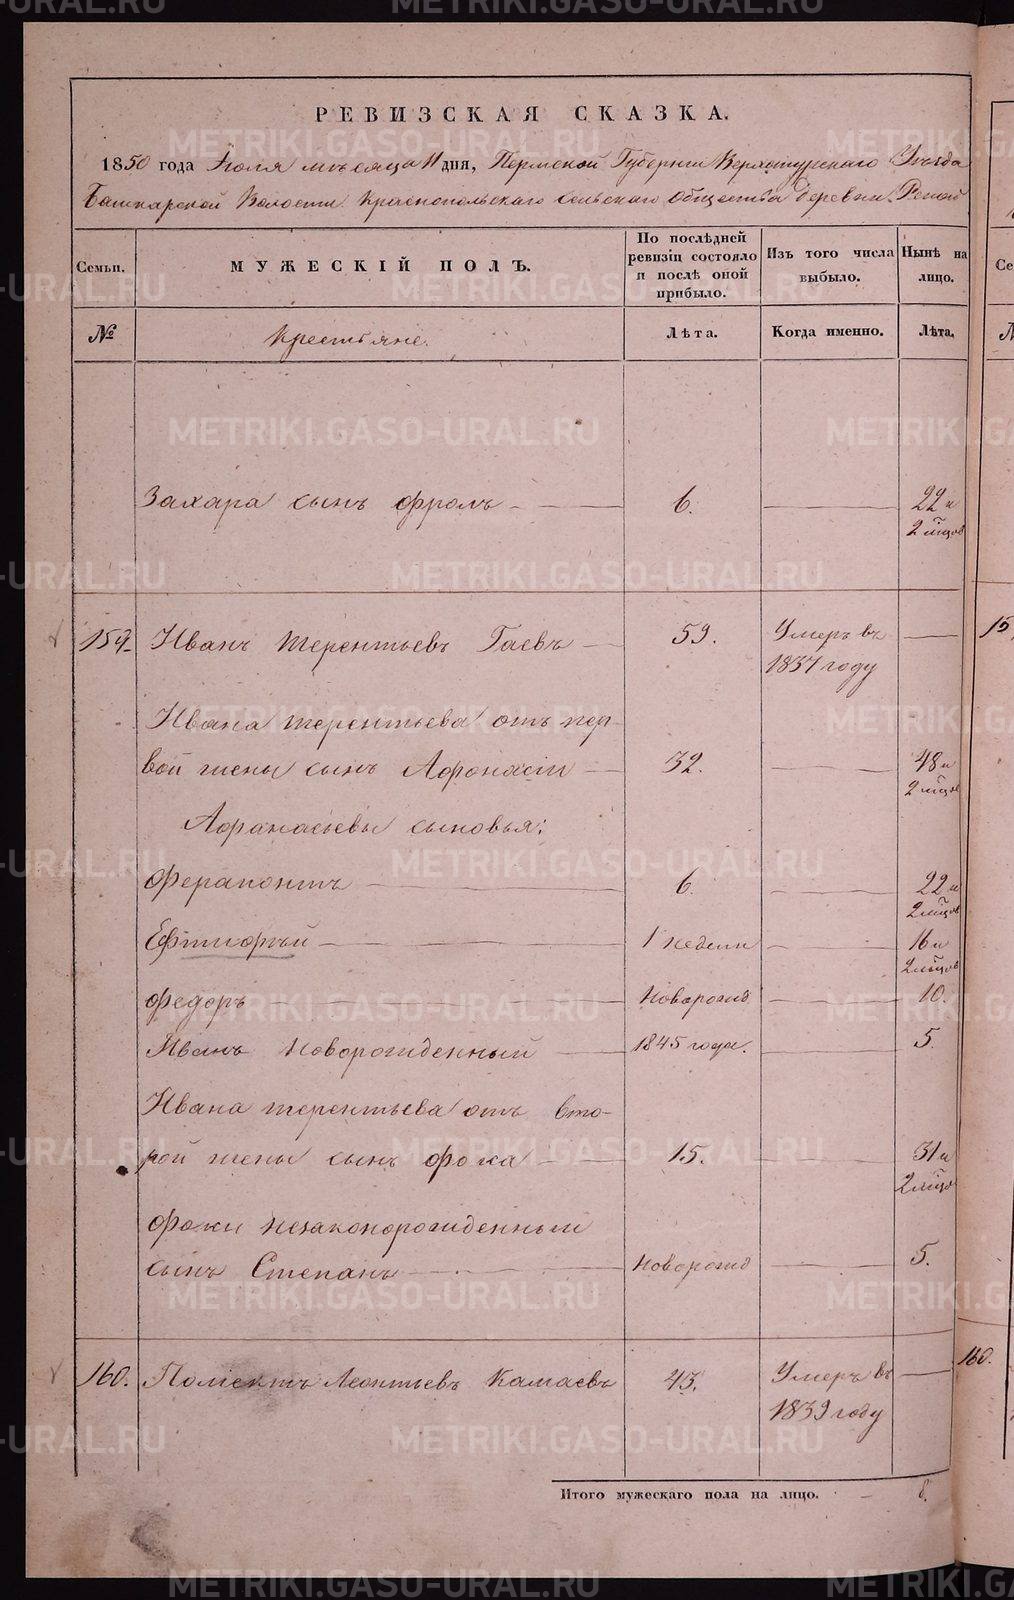 РЕВИЗСКАЯ СКАЗКА.
1850 года Июля мѣсяца 11 дня, Пермской Губерніи Верхотурскаго Уѣзда
Башкарской Волости Краснопольскаго сельскаго общества деревни
Семьи. МУЖЕСКІЙ ПОЛЪ. По послѣдней ревизіи состояло и послѣ оной прибыло. Изъ того числа выбыло. Нынѣ на лицо.
№ Крестьяне. Лѣта. Когда именно. Лѣта.
Захара сынъ Фролъ 6. 22 и
2 мѣцов
159. Иванъ Терентьевъ Гаевъ 59. Умеръ въ
1837 году
Ивана Терентьева отъ пер-
вой жены сынъ Афонасіи 32. 48 и
2 мѣцов
Афанасьевы сыновья:
Ферапонтъ 6. 22 и
2 мѣцов
1 недели 16 и
2 мѣцов
Федоръ Новорожд 10.
Иванъ Новорожденный 1845 года. 5.
Ивана Терентьева отъ вто-
рой жены сынъ Фока 15. 31 и
2 мѣцо
Фоки незаконорожденныи
сынъ Степанъ Новорожд 5.
160. Полиектъ Леонтьевъ Камаевъ 43. Умеръ въ
1839 году
Итого мужескаго пола на лицо. 8.
160.
METRIKI.GASO-URAL.RU